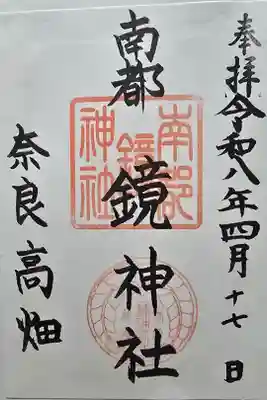 奉拝 令和八年四月十七日
南都 鏡神社
奈良高畑
南都
鏡
神社